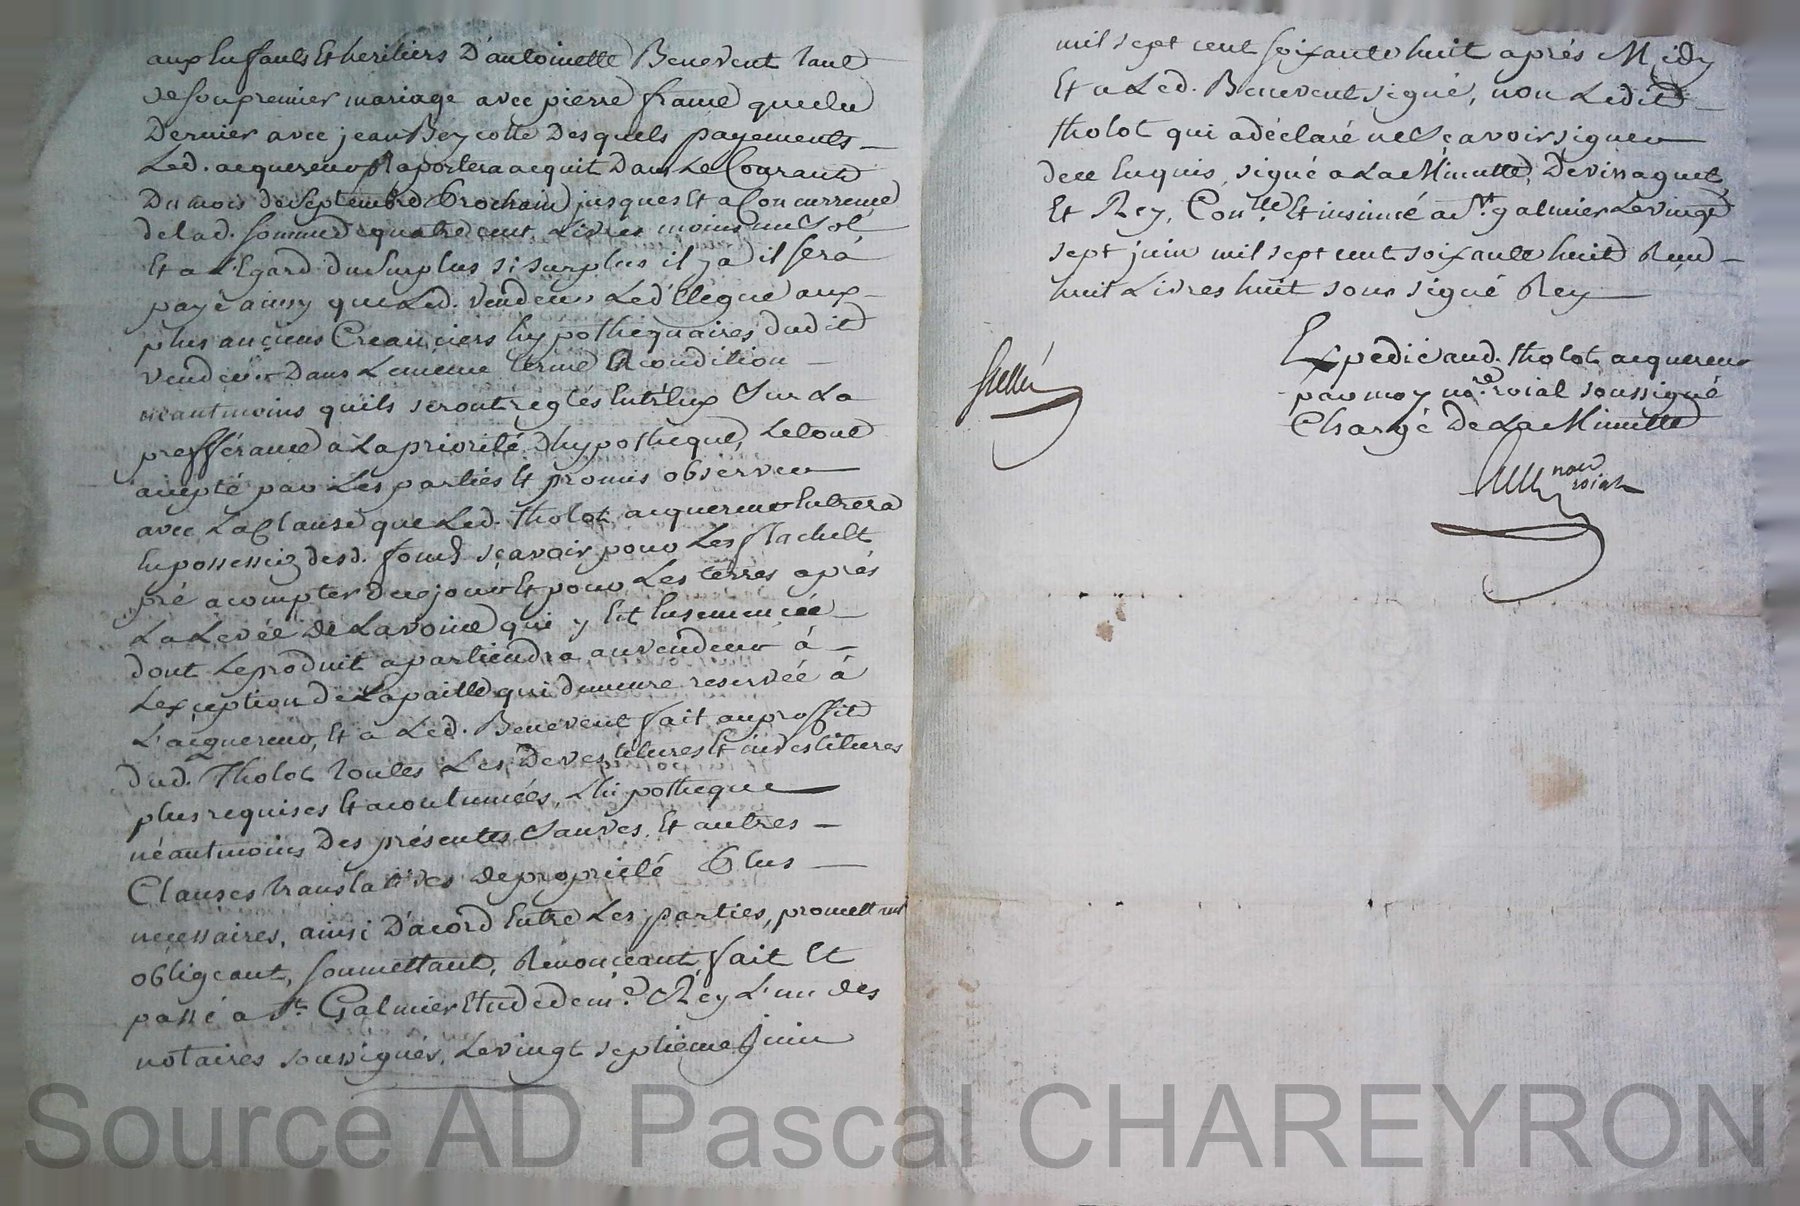 aux Enfants Et heritiers D'antoinette Benevent tant
de son premier mariage avec pierre frame que du
Dernier avec jean Béy cotte Desquels payements
Led. acquereur Raportera acquit Dans Le Courant
Du mois de Septembre Prochain jusques Et a Concurrence
de lad. somme de quatre cent Livres moins un Sol
Et a L'Egard du Surplus si surplus il y a il sera
payé ainsy que Led. vendeur Led'élégue aux
plus anciens Creanciers hypothequaires dudit
vendeur Dans Le meme terme & condition
néantmoins qu'ils seront reglés Entr'eux Sur La
prefférance a La priorité d'hypotheque, Le tout
accepté par Les parties Et promis observer
avec La Clause que Led. Tholot acquereur Entrera
En possession desd. fonds sçavoir pour Les Et
pré a compter de ce jour Et pour Les terres après
La Levée de L'avoine qui y Est Ensemencée
dont Le produit apartiendra au vendeur à
L'exception de La paille qui demeure reservée à
L'acquereur, Et a Led. Benevent fait au proffit
dud. Tholot toutes Les Devestitures Et investitures
plus requises Et acoutumées, L'hipotheque
néantmoins Des présentes Sauves. Et autres
Clauses translatives de proprieté Plus
necessaires, ainsi D'acord Entre Les parties, promettant
obligeant, soumettant, Renonçeant, fait Et
passé a St. Galmier Etude de me. Rey L'un des
notaires soussignés, Le vingt septieme Juin
mil sept cent soixante huit après Midy
Et a Led. Benevent signé, non Ledit
Tholot qui a déclaré ne Sçavoir signer
de ce Enquis, signé a La Minutte, Devinsaguet
Et Rey, Conlle. Et insinué a St. galmier Le vingt
sept juin mil sept cent soixante huit Reçu
huit Livres huit sous signé Rey
Expedié aud. Tholot acquereur
par moy nore. roial soussigné
Chargé de La Minutte
nore
roial
Source AD Pascal CHAREYRON